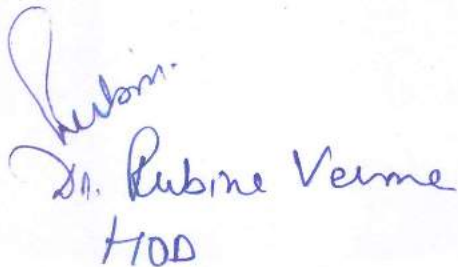 Rubin.
Dr. Rubine Verme
HOD